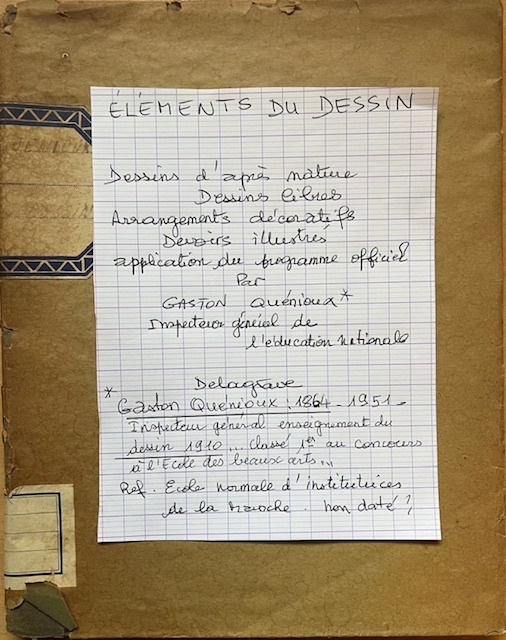 ÉLÉMENTS DU DESSIN
Dessins d'après nature
Dessins libres
Arrangements décoratifs
Devoirs illustrés
application du programme officiel
Par
GASTON QUÉNIOUX*
Inspecteur général de
l'education nationale
Delagrave
* Gaston QUÉNIOUX : 1864 - 1951 -
Inspecteur général enseignement du
dessin 1910 ... classé 1er au concours
à l'Ecole des beaux arts...
Ref. Ecole normale d'institutrices
de la Manche. non daté ?